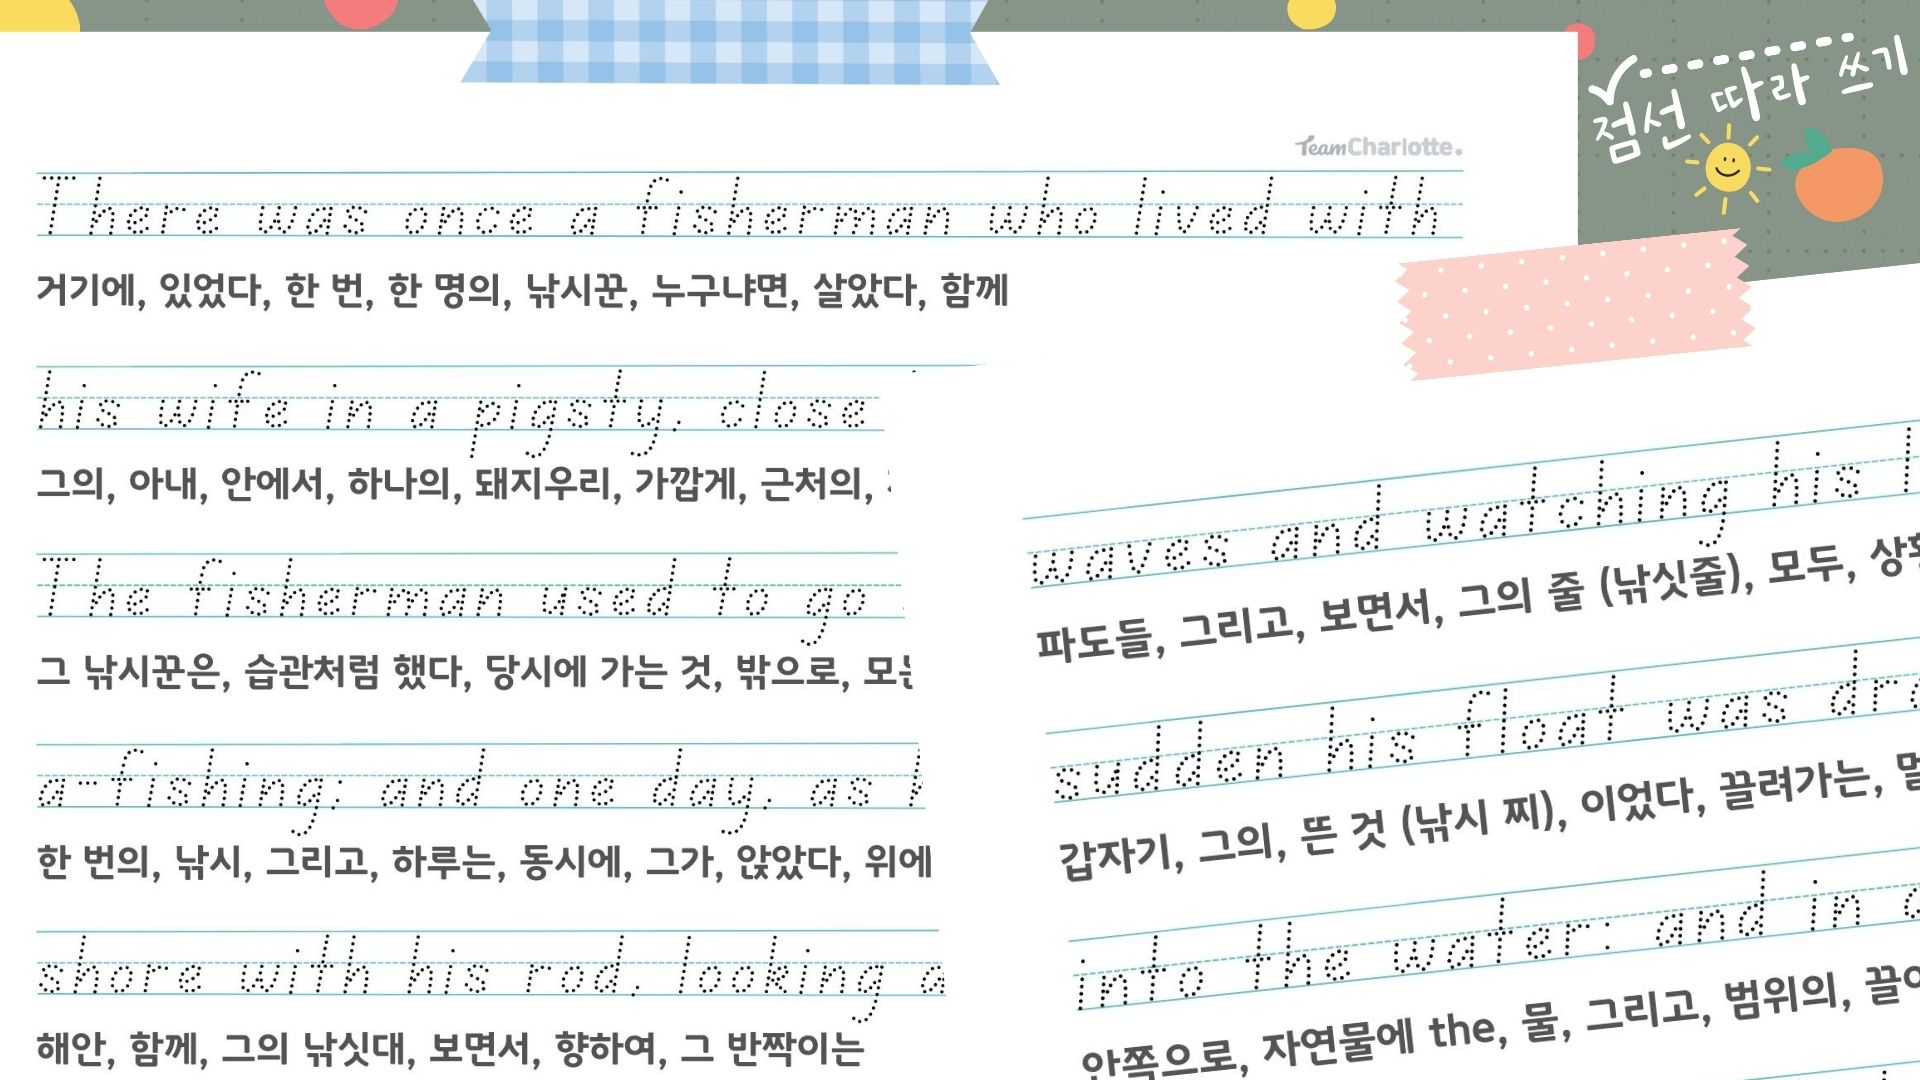 점선 따라 쓰기
TeamCharlotte.
There was once a fisherman who lived with
거기에, 있었다, 한 번, 한 명의, 낚시꾼, 누구냐면, 살았다, 함께
his wife in a pigsty, close
그의, 아내, 안에서, 하나의, 돼지우리, 가깝게, 근처의,
The fisherman used to go
그 낚시꾼은, 습관처럼 했다, 당시에 가는 것, 밖으로,
a-fishing; and one day, as
한 번의, 낚시, 그리고, 하루는, 동시에, 그가, 앉았다, 위에
shore with his rod, looking
해안, 함께, 그의 낚싯대, 보면서, 향하여, 그 반짝이는
waves and watching his
파도들, 그리고, 보면서, 그의 줄 (낚싯줄), 모두,
sudden his float was
갑자기, 그의, 뜬 것 (낚시 찌), 이었다, 끌려가는,
into the water: and in
안쪽으로, 자연물에 the, 물, 그리고, 범위의,